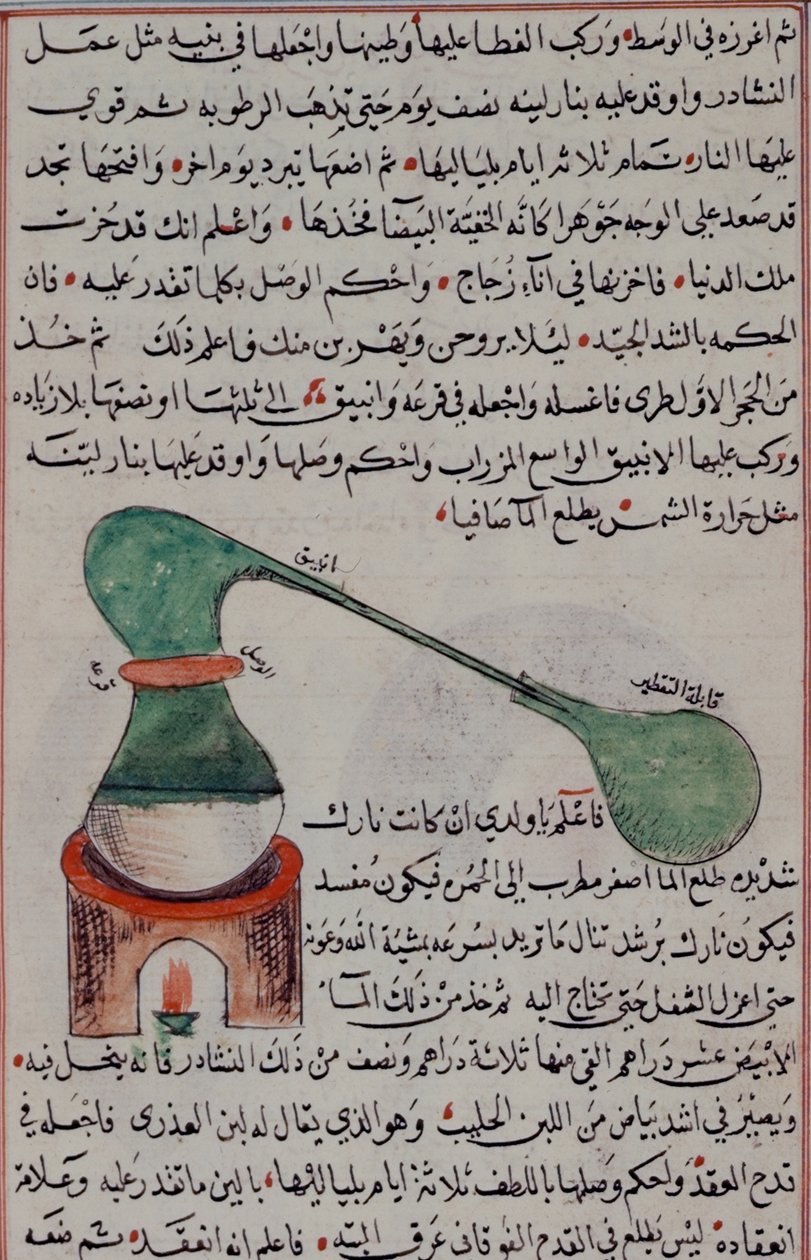 ثم اغرزه في الوسط وركب الغطا عليها وطينها واجعلها في بنيه مثل عمل
النشادر واوقد عليه بنار لينه نصف يوم حتى يذهب الرطوبه ثم قوي
عليها النار تمام ثلاثه ايام بلياليها ثم اضعها تبرد يوم اخر وافتحها تجد
قد صعد على الوجه جوهرا كانه البيضا فخذها واعلم انك قد حزت
ملك الدنيا فاخزنها في انآء زجاج واحكم الوصل بكلما تقدر عليه فان
الحكمه بالشد الجيد ليئلا يروحن ويهربن منك فاعلم ذلك ثم خذ
من الحجر الاول طرى فاغسله واجعله في قرعه وانبيق الى ثلثها او نصفها بلا زياده
وركب عليها الانبيق الواسع المزراب واحكم وصلها واوقد عليها بنار لينه
مثل حرارة الشمس يطلع المآ صافيا
انبيق
الوصل
قرعه
قابلة التقطير
فاعلم يا ولدي ان كانت نارك
شديده طلع الما اصفر مطرب الى الحمره فيكون مفسد
فيكون نارك برشد تنال ما تريد بسرعه بمشية الله وعونه
حتى اعزل الثفل حتى تحتاج اليه ثم خذ من ذلك المآء
الابيض عشر دراهم القي منها ثلاثة دراهم ونصف من ذلك النشادر فانه ينحل فيه
ويصير في اشد بياض من اللبن الحليب وهو الذي يقال له لبن العذرى فاجعله في
قدح العقد واحكم وصلها باللطف ثلاثة ايام بلياليها بالين ما تقدر عليه وعلامة
انعقاده ليس يطلع في القدح الفوقاني عرق البته فاعلم انه انعقد ثم ضعه